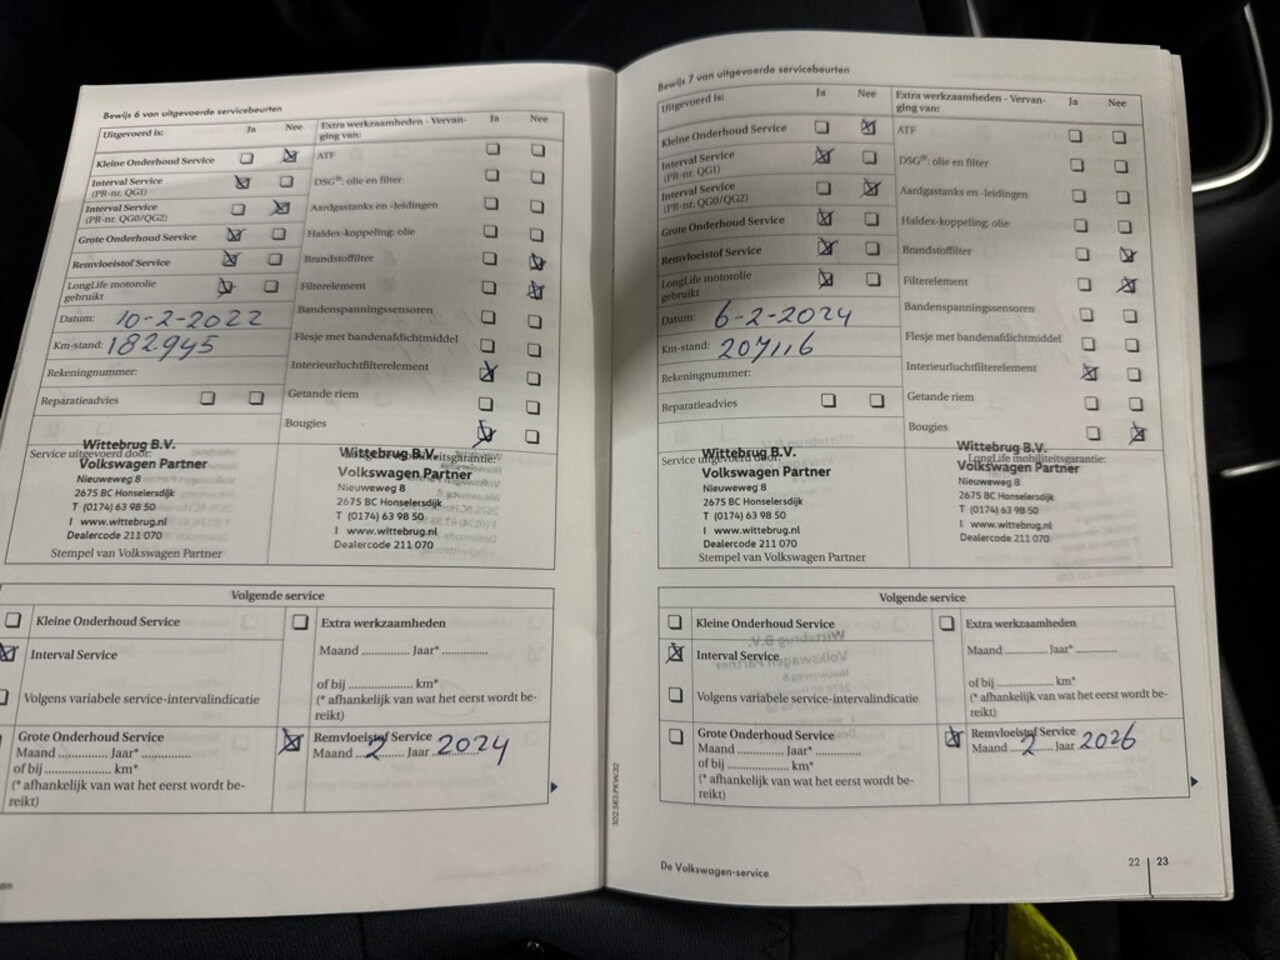 Bewijs 6 van uitgevoerde servicebeurten
Uitgevoerd is: Ja Nee
Kleine Onderhoud Service
Interval Service
(PR-nr. QG1)
Interval Service
(PR-nr. QG0/QG2)
Grote Onderhoud Service
Remvloeistof Service
LongLife motorolie
gebruikt
Datum: 10-2-2022
Km-stand: 182945
Rekeningnummer:
Reparatieadvies
Extra werkzaamheden - Vervan-
ging van: Ja Nee
ATF
DSG®: olie en filter
Aardgastanks en -leidingen
Haldex-koppeling: olie
Brandstoffilter
Filterelement
Bandenspanningssensoren
Flesje met bandenafdichtmiddel
Interieurluchtfilterelement
Getande riem
Bougies
Service uitgevoerd door:
Wittebrug B.V.
Volkswagen Partner
Nieuweweg 8
2675 BC Honselersdijk
T (0174) 63 98 50
I www.wittebrug.nl
Dealercode 211 070
Stempel van Volkswagen Partner
Wittebrug B.V.
Volkswagen Partner
Nieuweweg 8
2675 BC Honselersdijk
T (0174) 63 98 50
I www.wittebrug.nl
Dealercode 211 070
Volgende service
Kleine Onderhoud Service
Interval Service
Volgens variabele service-intervalindicatie
Grote Onderhoud Service
Maand ............. Jaar* .............
of bij .................. km*
(* afhankelijk van wat het eerst wordt be-
reikt)
Extra werkzaamheden
Maand ............ Jaar* ............
of bij ................ km*
(* afhankelijk van wat het eerst wordt be-
reikt)
Remvloeistof Service
Maand 2 Jaar 2024
Bewijs 7 van uitgevoerde servicebeurten
Uitgevoerd is: Ja Nee
Kleine Onderhoud Service
Interval Service
(PR-nr. QG1)
Interval Service
(PR-nr. QG0/QG2)
Grote Onderhoud Service
Remvloeistof Service
LongLife motorolie
gebruikt
Datum: 6-2-2024
Km-stand: 207116
Rekeningnummer:
Reparatieadvies
Extra werkzaamheden - Vervan-
ging van: Ja Nee
ATF
DSG®: olie en filter
Aardgastanks en -leidingen
Haldex-koppeling: olie
Brandstoffilter
Filterelement
Bandenspanningssensoren
Flesje met bandenafdichtmiddel
Interieurluchtfilterelement
Getande riem
Bougies
Service uitgevoerd door:
Wittebrug B.V.
Volkswagen Partner
Nieuweweg 8
2675 BC Honselersdijk
T (0174) 63 98 50
I www.wittebrug.nl
Dealercode 211 070
Stempel van Volkswagen Partner
LongLife mobiliteitsgarantie:
Wittebrug B.V.
Volkswagen Partner
Nieuweweg 8
2675 BC Honselersdijk
T (0174) 63 98 50
I www.wittebrug.nl
Dealercode 211 070
Volgende service
Kleine Onderhoud Service
Interval Service
Volgens variabele service-intervalindicatie
Grote Onderhoud Service
Maand ............. Jaar* .............
of bij .................. km*
(* afhankelijk van wat het eerst wordt be-
reikt)
Extra werkzaamheden
Maand ............ Jaar* ............
of bij ................ km*
(* afhankelijk van wat het eerst wordt be-
reikt)
Remvloeistof Service
Maand 2 Jaar 2026
De Volkswagen-service
22 | 23